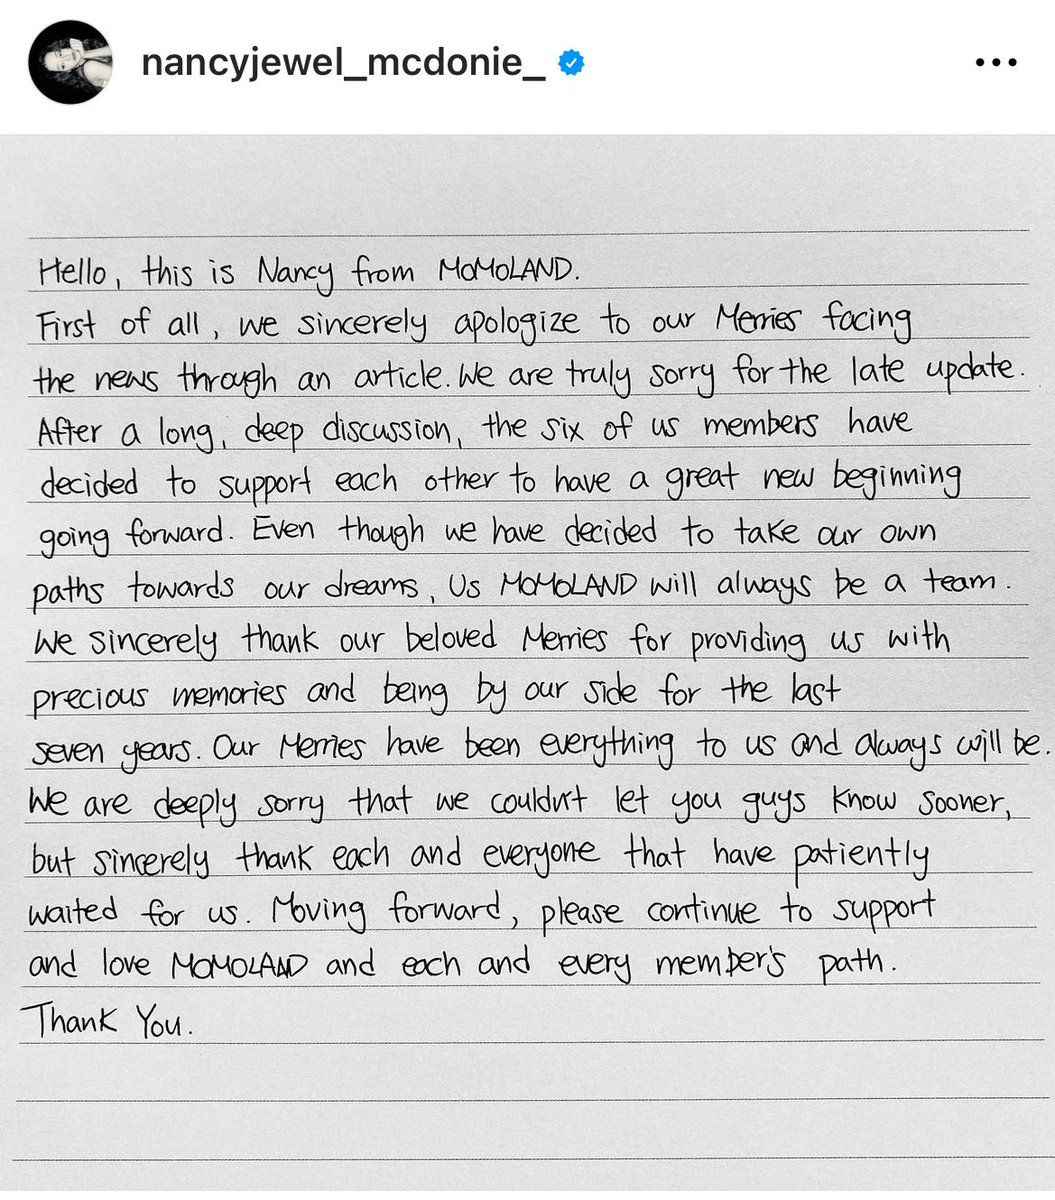 nancyjewel_mcdonie_
Hello, this is Nancy from MOMOLAND.
First of all, we sincerely apologize to our Merries facing
the news through an article. We are truly sorry for the late update.
After a long, deep discussion, the six of us members have
decided to support each other to have a great new beginning
going forward. Even though we have decided to take our own
paths towards our dreams, Us MOMOLAND will always be a team.
We sincerely thank our beloved Merries for providing us with
precious memories and being by our side for the last
seven years. Our Merries have been everything to us and always will be.
We are deeply sorry that we couldn't let you guys know sooner,
but sincerely thank each and everyone that have patiently
waited for us. Moving forward, please continue to support
and love MOMOLAND and each and every member's path.
Thank You.